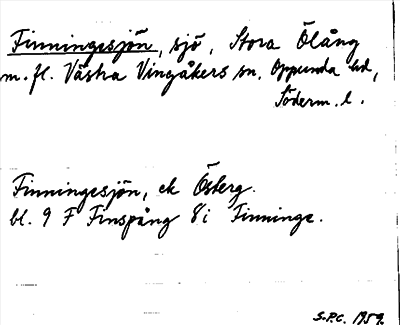 Finningesjön, sjö, Stora Ölång
m.fl. Västra Vingåkers sn, Oppunda hd,
Söderm. l.
Finningesjön, ek Österg.
bl. 9 F Finspång 8i Finninge.
S.P.C. 1959.